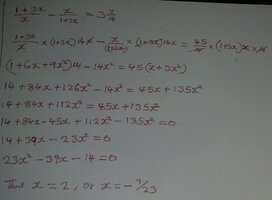 1+3x/x - x/1+3x = 3 3/14
1+3x/x × (1+3x) 14x - x/(1+3x) × (1+3x) 14x = 45/14 × (1+3x) x × 14
(1+6x+9x²) 14 - 14x² = 45(x+3x²)
14 + 84x + 126x² - 14x² = 45x + 135x²
14 + 84x + 112x² = 45x + 135x²
14 + 84x - 45x + 112x² - 135x² = 0
14 + 39x - 23x² = 0
23x² - 39x - 14 = 0
Thus x = 2, or x = -7/23